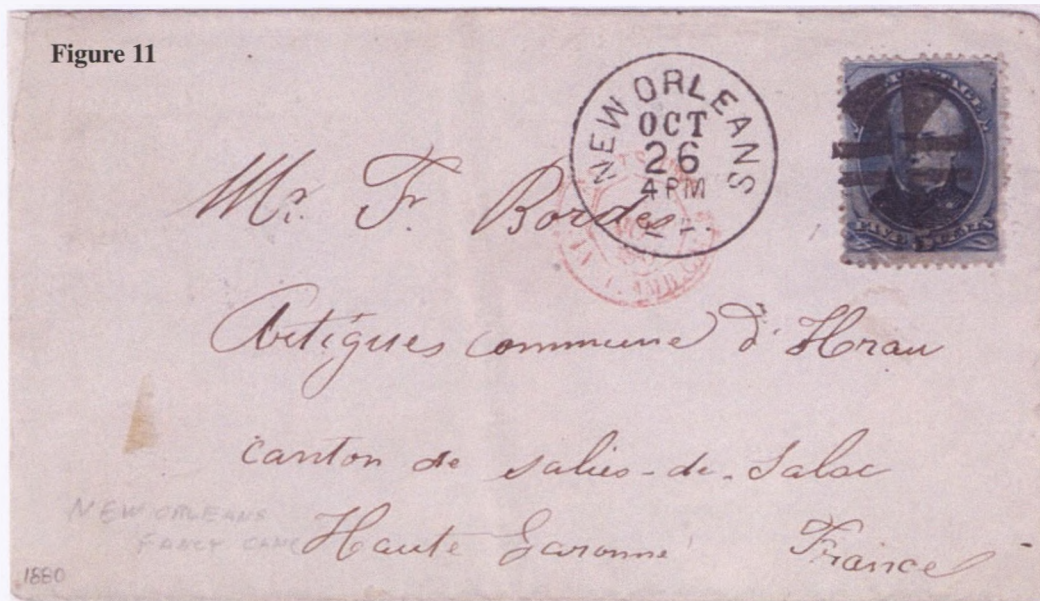 Figure 11
NEW ORLEANS
OCT
26
4 PM
LA.
POSTAGE
FIVE CENTS
Mr. Fr Bordes
Artigues commune d'Hrau
canton de salies-de-Salac
Haute Garonne
France
NEW ORLEANS
FANCY CANC
1880